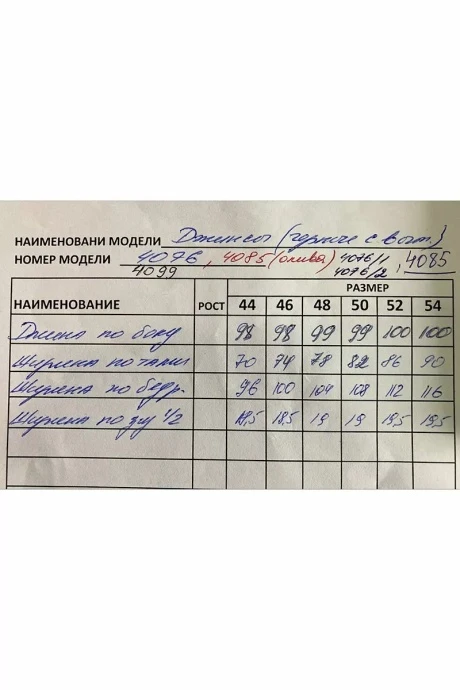 НАИМЕНОВАНИ МОДЕЛИ Джинсы (черные с выт.)
НОМЕР МОДЕЛИ 4076, 4085 (олива) 4076/1, 4085
4099 4076/2
РАЗМЕР
НАИМЕНОВАНИЕ РОСТ 44 46 48 50 52 54
Длина по боку 98 98 99 99 100 100
Ширина по талии 70 74 78 82 86 90
Ширина по бедр. 96 100 104 108 112 116
Ширина по низу 1/2 18,5 18,5 19 19 19,5 19,5